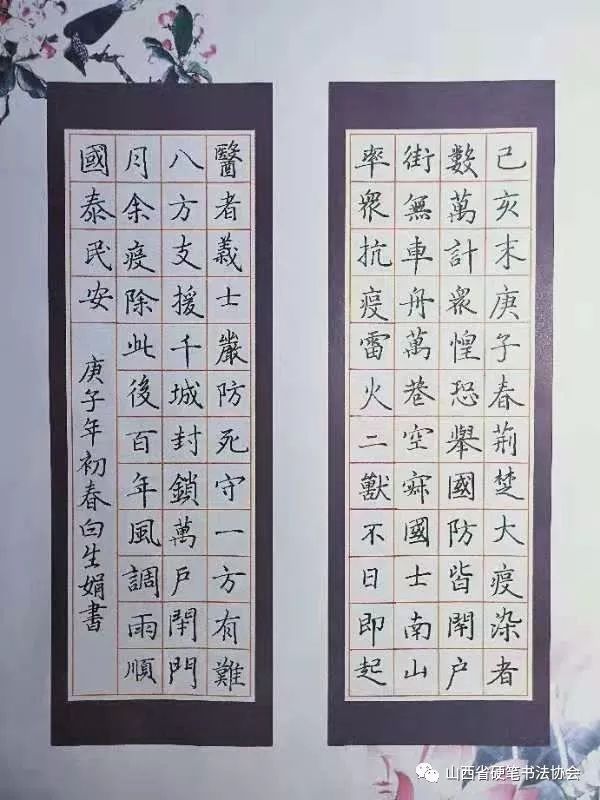 己亥末庚子春荆楚大疫染者
數萬計衆惶恐舉國防皆閉户
街無車舟萬巷空寂國士南山
率衆抗疫雷火二獸不日即起
醫者義士嚴防死守一方有難
八方支援千城封鎖萬户閉門
月余疫除此後百年風調雨順
國泰民安
庚子年初春白生娟書
山西省硬笔书法协会